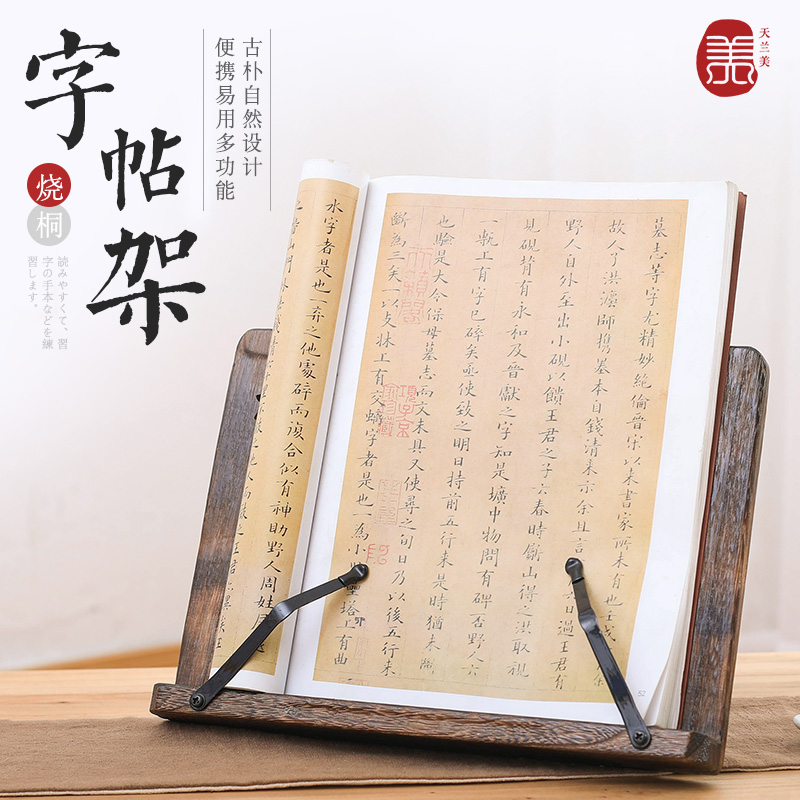 字帖架
烧桐
読みやすくて、習
字の手本などを練
習します。
古朴自然设计
便携易用多功能
美
天兰美
墓志等字尤精妙絶倫晉宋以来書家所未有也壬戌
故人了洪灋師携墓本自錢清来示余且言日過王君有
野人自外至出小硯以饋王君之子六春時斸山得之洪取視
見硯背有永和及晉獻之字知是壙中物問有碑否野人六
一甎上有字已碎矣亟使致之明日持前五行来是時猶未斷
也驗是大令保母墓志而文未具又使尋之旬日乃以後五行来
斷為三矣一以支牀上有交螭字者是也一為小壘塔上有曲
52
水字者是也一弃之他處碎而復合似有神助野人周姓